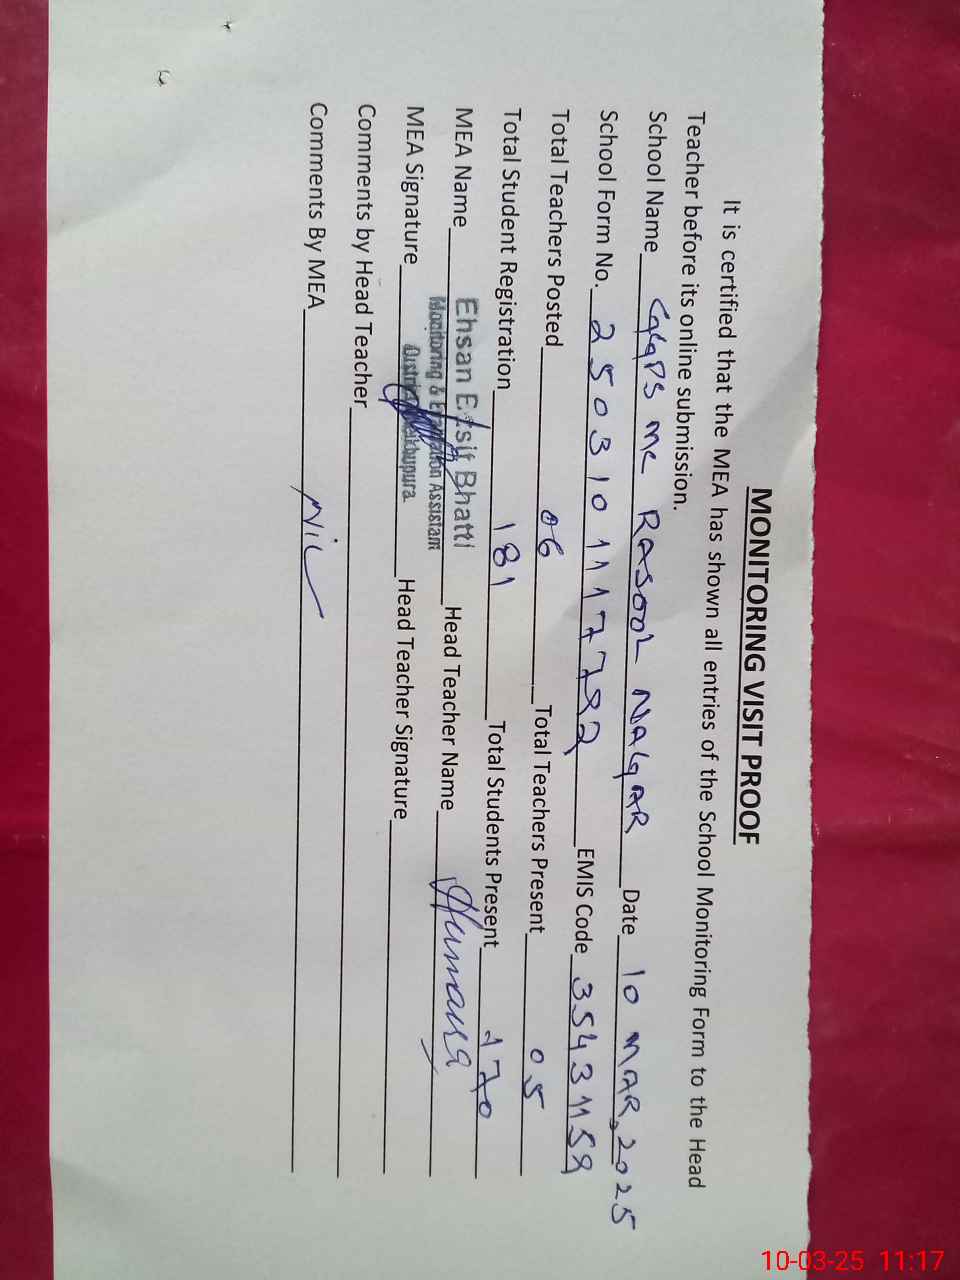 MONITORING VISIT PROOF
It is certified that the MEA has shown all entries of the School Monitoring Form to the Head
Teacher before its online submission.
School Name GGPS MC RASOOL NAGAR Date 10 MAR, 2025
School Form No. 2503101117792 EMIS Code 35431159
Total Teachers Posted 06 Total Teachers Present 05
Total Student Registration 181 Total Students Present 170
MEA Name Ehsan Bhatti Head Teacher Name Humaira
Monitoring & Evaluation Assistant
MEA Signature District Sheikhupura Head Teacher Signature
Comments by Head Teacher
Comments By MEA Nil
10-03-25 11:17